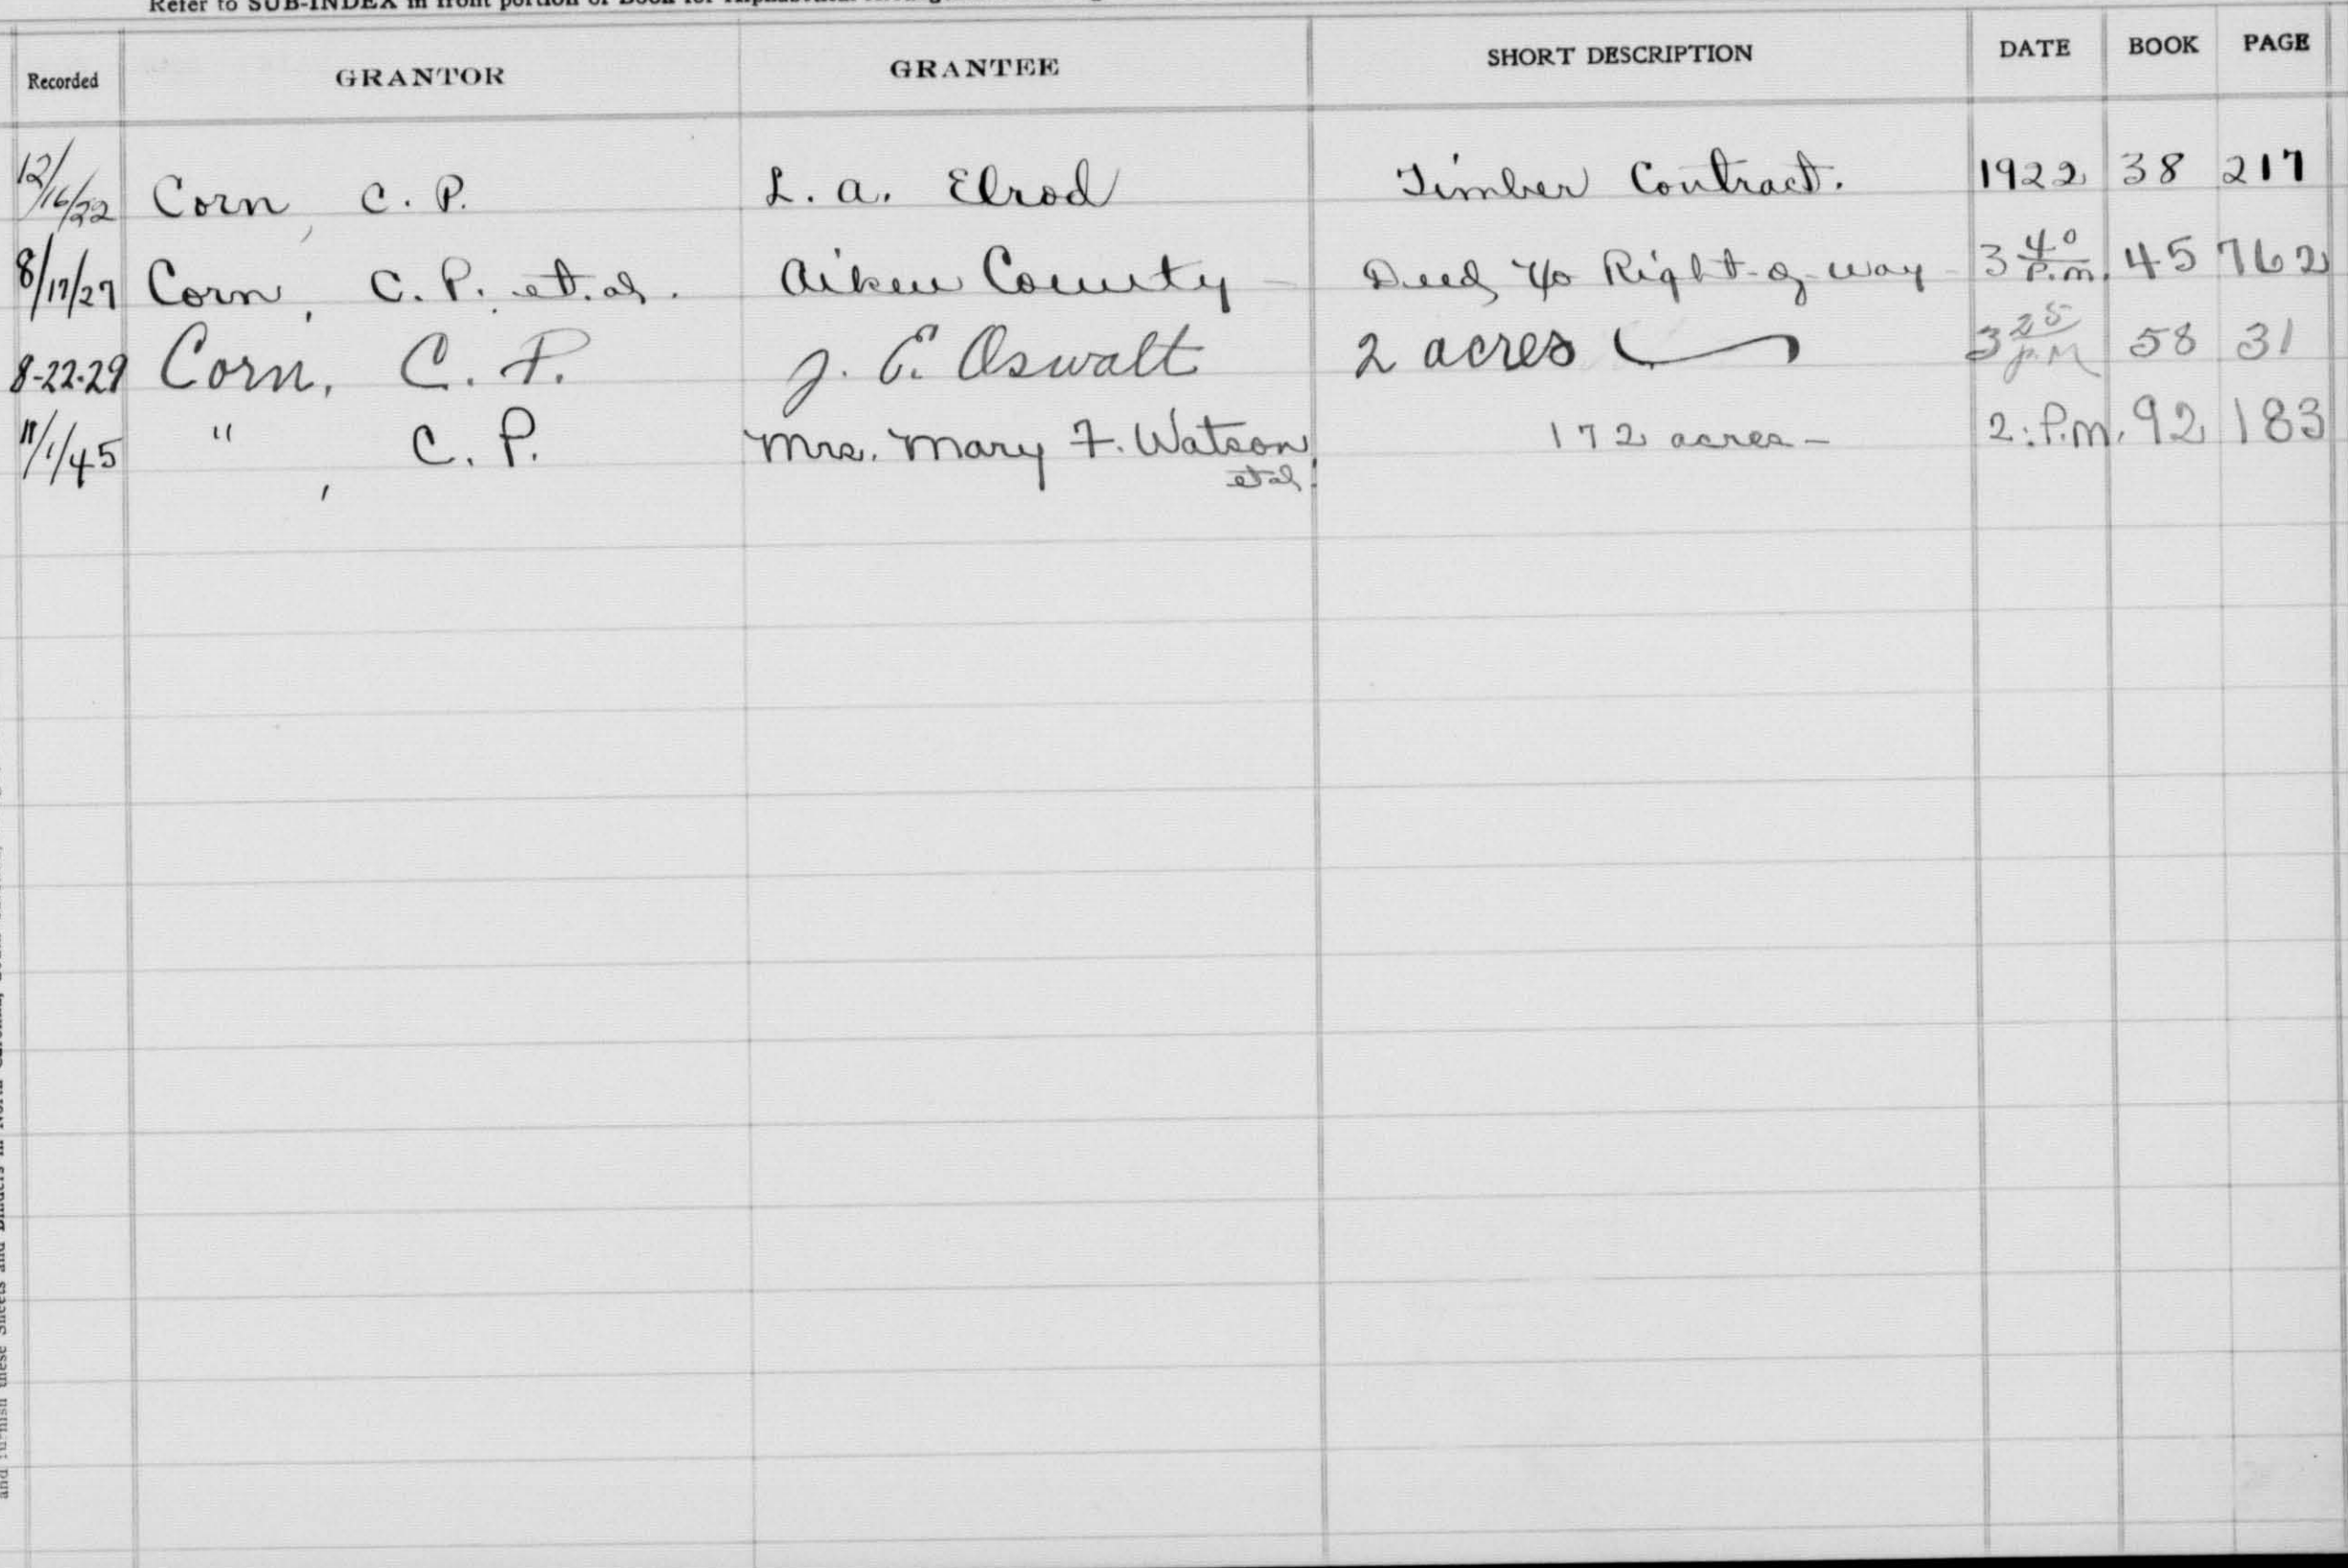 Refer to SUB-INDEX in front portion of Book for
Recorded GRANTOR GRANTEE SHORT DESCRIPTION DATE BOOK PAGE
12/16/22 Corn, C. P. L. A. Elrod Timber Contract. 1922 38 217
8/17/27 Corn, C. P. et. al. Aiken County Deed to Right-of-way 3 40 P.M. 45 762
8-22-29 Corn, C. P. J. E. Oswalt 2 acres 3 25 P.M 58 31
11/1/45 " , C. P. Mrs. Mary F. Watson 172 acres – 2:P.M. 92 183
et al.